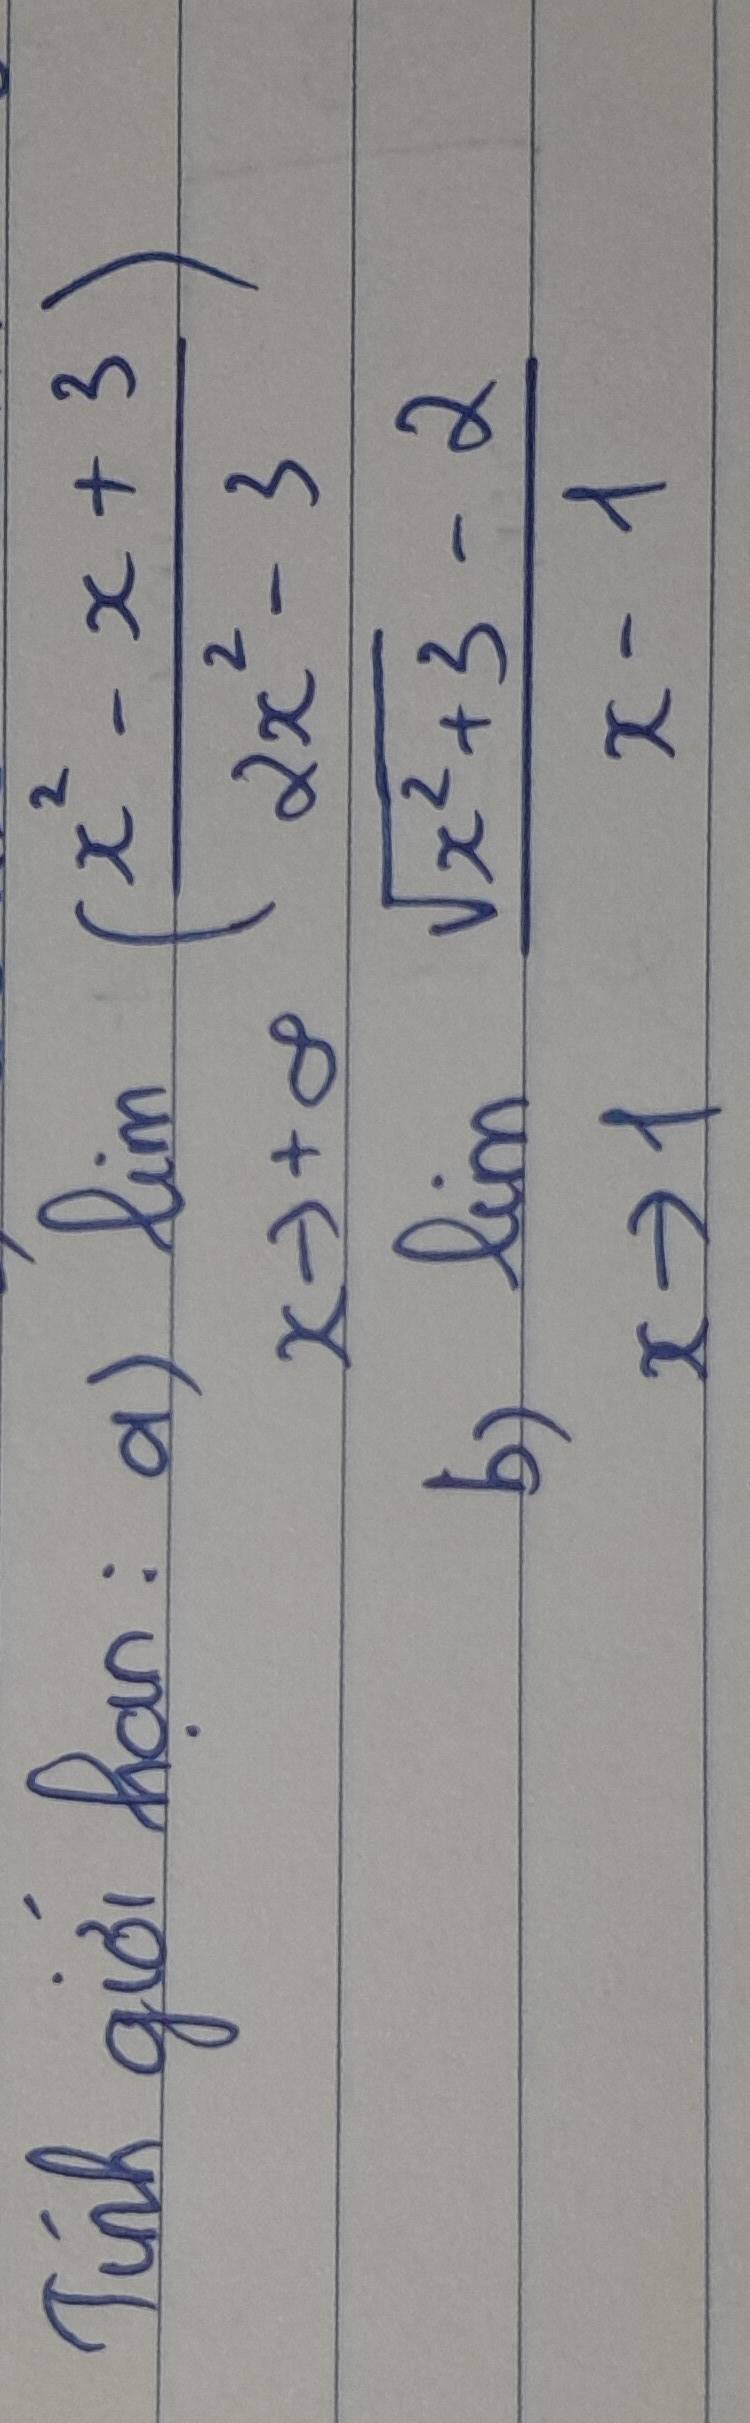 Tính giới hạn: a) lim (x² - x + 3)
x→+∞ 2x² - 3
b) lim √x²+3 - 2
x→1 x - 1